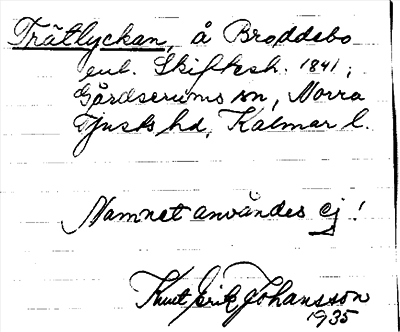 Trätlyckan, å Broddebo
enl. Skiftesh. 1841;
Gårdserums sn, Norra
Tjusts hd, Kalmar l.
Namnet användes ej!
Knut Erik Johansson
1935